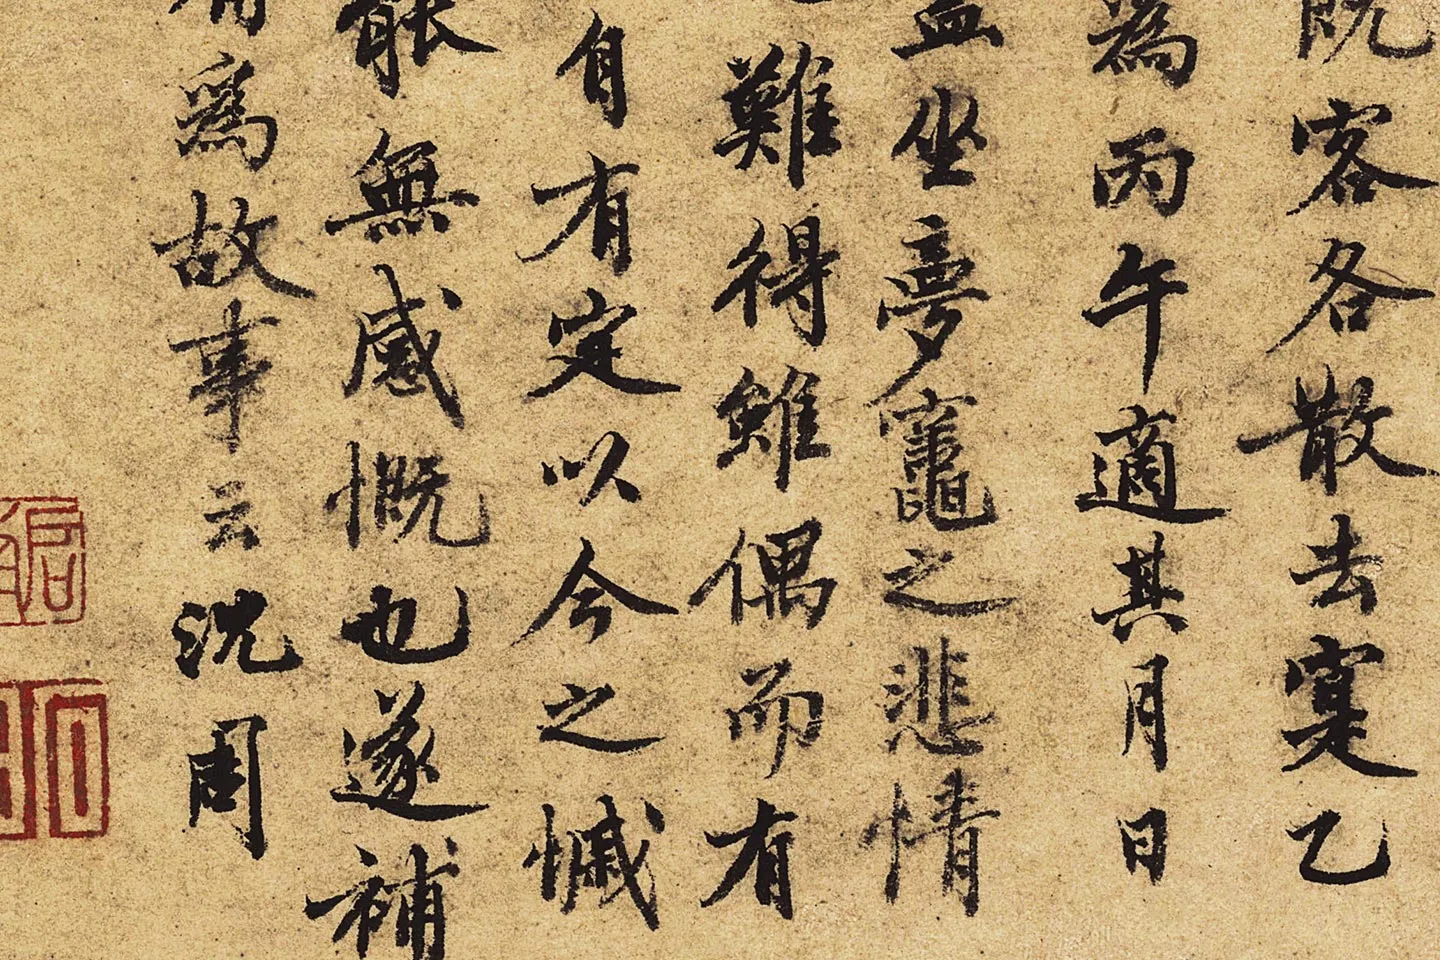 既客各散去寔乙
為丙午適其月日
盃坐夢竈之悲情
難得雖偶而有
自有定以今之慽
能無感慨也遂補
有為故事云沈周